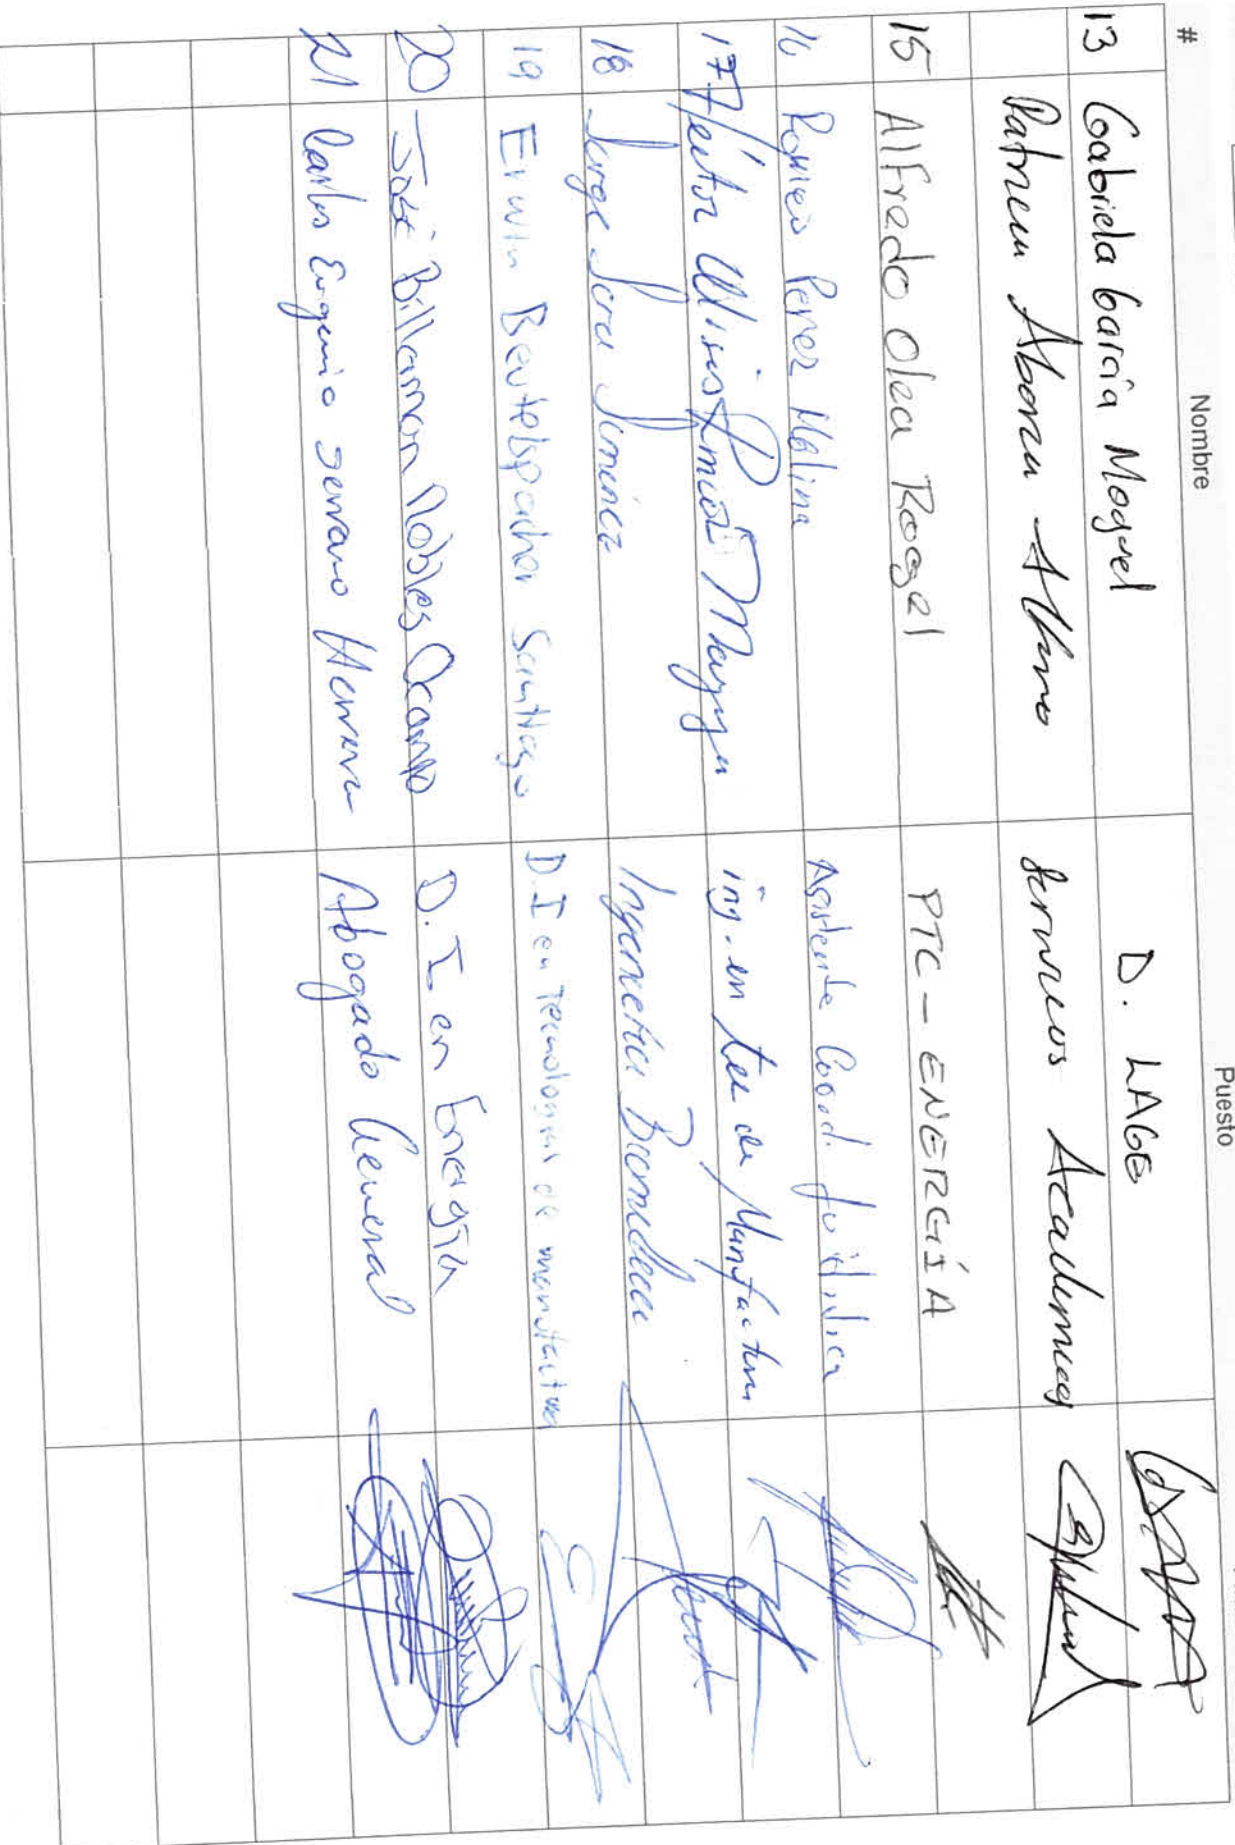 # Nombre Puesto
13 Gabriela García Moguel D. LAGE
Servicios Academicos
15 Alfredo Olea Rogel PTC - ENERGÍA
16 Perez Molina Asistente Coord. Jurídica
17 Héctor Ulises Mayya ing. en tec de Manufactura
18 Jorge Jiménez Ingeniería Biomédica
19 Erwin Beutelspacher Santiago D.I en Tecnologías de manufactura
20 José Billarmon Nobles Ocampo D. I en Energía
21 Carlos Eugenio serrano Herrera Abogado General